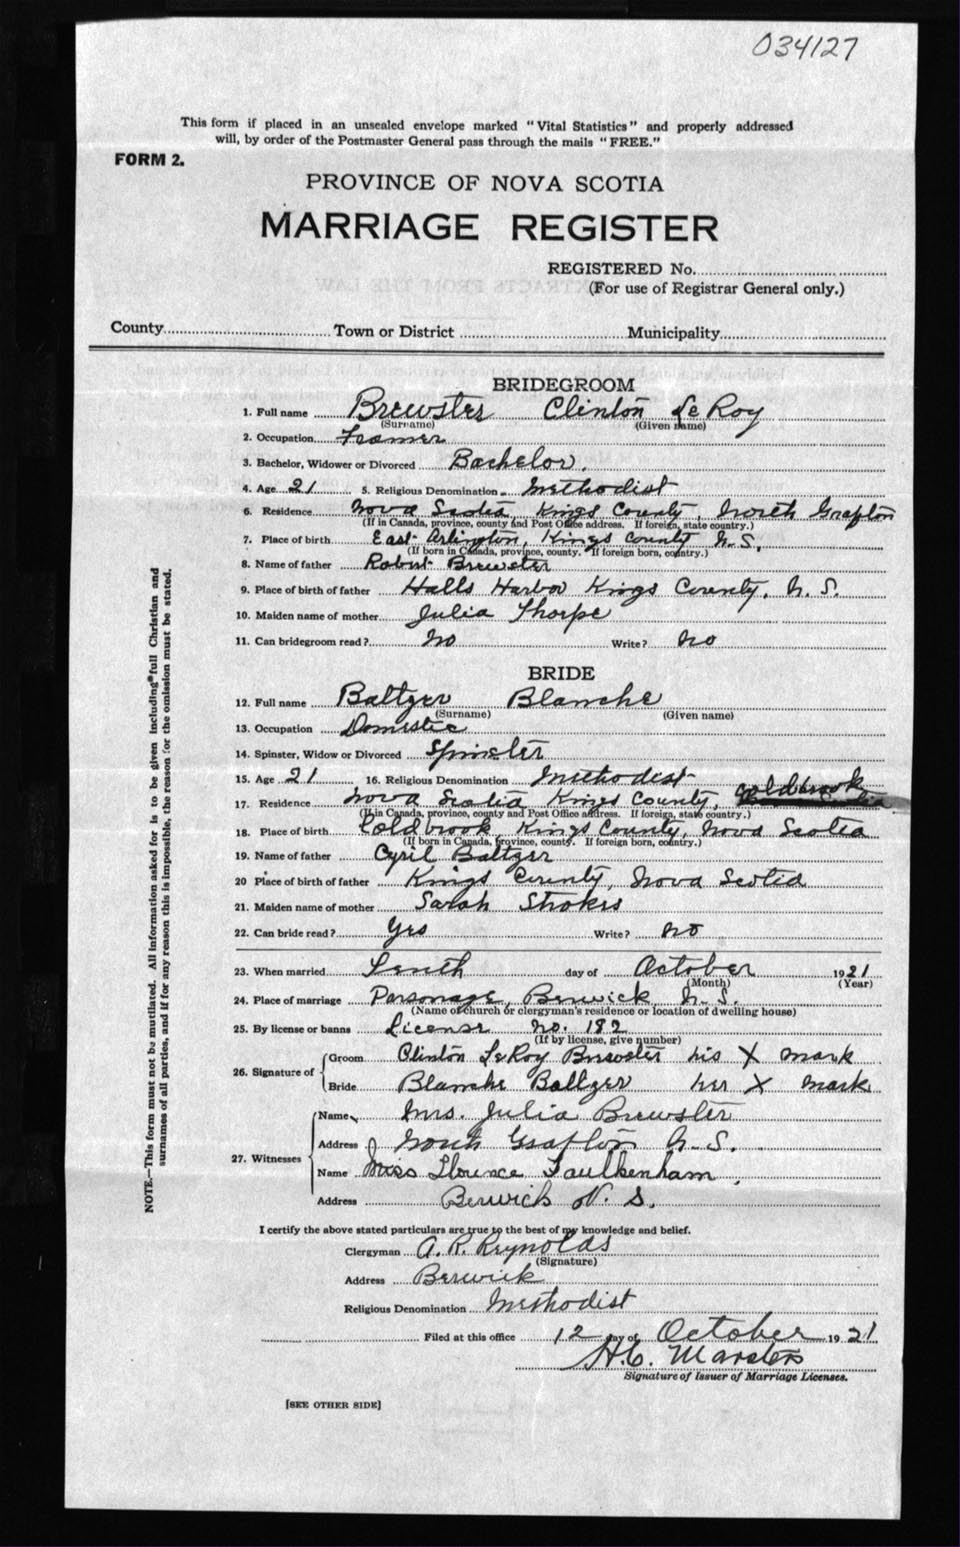 034127
This form if placed in an unsealed envelope marked "Vital Statistics" and properly addressed
will, by order of the Postmaster General pass through the mails "FREE."
FORM 2.
PROVINCE OF NOVA SCOTIA
MARRIAGE REGISTER
REGISTERED No.
(For use of Registrar General only.)
County Town or District Municipality
BRIDEGROOM
1. Full name Brewster Clinton LeRoy
(Surname) (Given name)
2. Occupation Farmer
3. Bachelor, Widower or Divorced Bachelor.
4. Age 21 5. Religious Denomination Methodist
6. Residence Nova Scotia Kings County, North Grafton
(If in Canada, province, county and Post Office address. If foreign, state country.)
7. Place of birth East Arlington, Kings County N.S.
(If born in Canada, province, county. If foreign born, country.)
8. Name of father Robert Brewster
9. Place of birth of father Halls Harbor Kings County, N.S.
10. Maiden name of mother Julia Thorpe
11. Can bridegroom read? No Write? No
BRIDE
12. Full name Baltzer Blanche
(Surname) (Given name)
13. Occupation Domestic
14. Spinster, Widow or Divorced Spinster
15. Age 21 16. Religious Denomination Methodist
17. Residence Nova Scotia Kings County, Coldbrook
(If in Canada, province, county and Post Office address. If foreign, state country.)
18. Place of birth Coldbrook, Kings County, Nova Scotia
(If born in Canada, province, county. If foreign born, country.)
19. Name of father Cyril Baltzer
20 Place of birth of father Kings County, Nova Scotia
21. Maiden name of mother Sarah Stokes
22. Can bride read? Yes Write? No
23. When married Tenth day of October 1921
(Month) (Year)
24. Place of marriage Parsonage, Berwick N.S.
(Name of church or clergyman's residence or location of dwelling house)
25. By license or banns License No. 182
(If by license, give number)
26. Signature of Groom Clinton LeRoy Brewster his X mark
Bride Blanche Baltzer her X mark
27. Witnesses Name Mrs. Julia Brewster
Address North Grafton N.S.
Name Miss Florence Faulkenham,
Address Berwick N.S.
I certify the above stated particulars are true to the best of my knowledge and belief.
Clergyman A. R. Reynolds
(Signature)
Address Berwick
Religious Denomination Methodist
Filed at this office 12 day of October 1921
H.C. Marsters
Signature of Issuer of Marriage Licenses.
[SEE OTHER SIDE]
NOTE.—This form must not be mutilated. All information asked for is to be given including full Christian and
surnames of all parties, and if for any reason this is impossible, the reason for the omission must be stated.